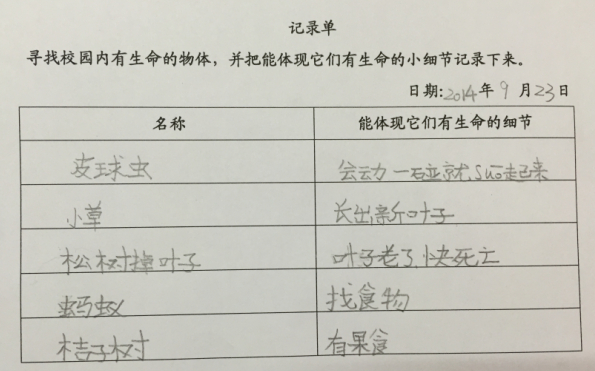 记录单
寻找校园内有生命的物体，并把能体现它们有生命的小细节记录下来。
日期:2014年9月23日
名称 能体现它们有生命的细节
皮球虫 会动一碰就suo起来
小草 长出新叶子
松树掉叶子 叶子老了快死亡
蚂蚁 找食物
桔子树 有果食